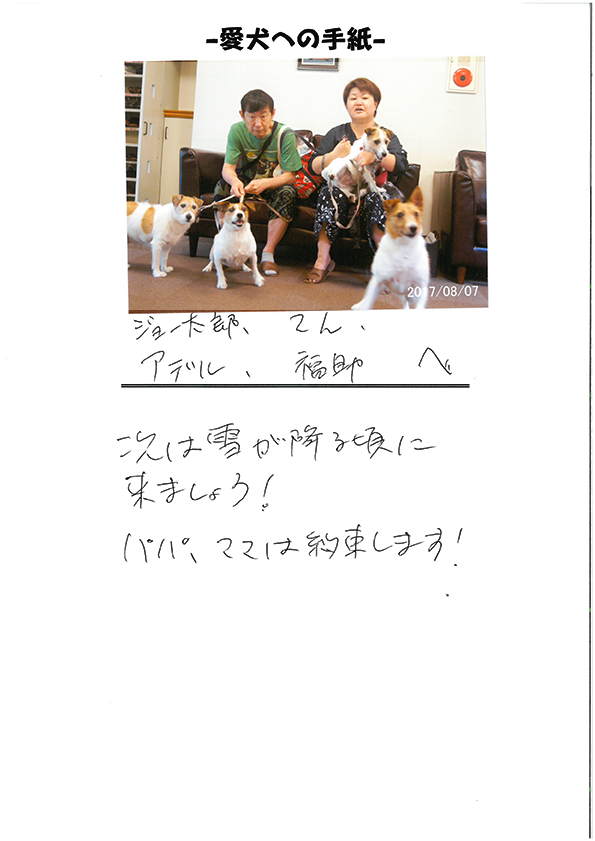 -愛犬への手紙-
2017/08/07
ジョー太郎、てん、
アデル、福助 へ
次は雪が降る頃に
来ましょう!
パパ、ママは約束します!